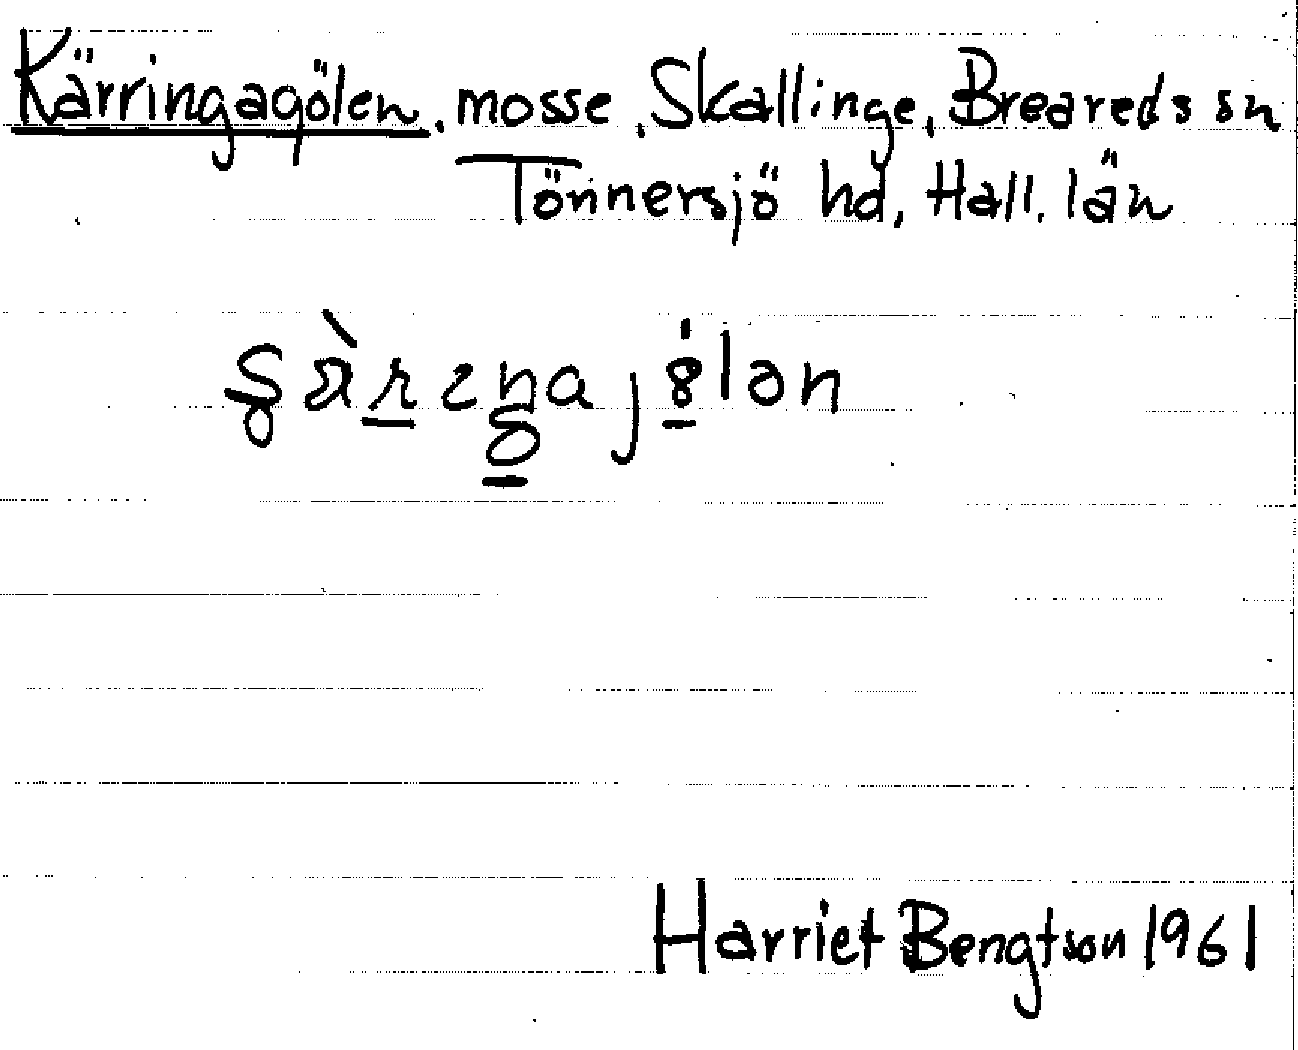 Kärringagölen, mosse, Skallinge, Breareds sn
Tönnersjö hd, Hall. län
Harriet Bengtson 1961